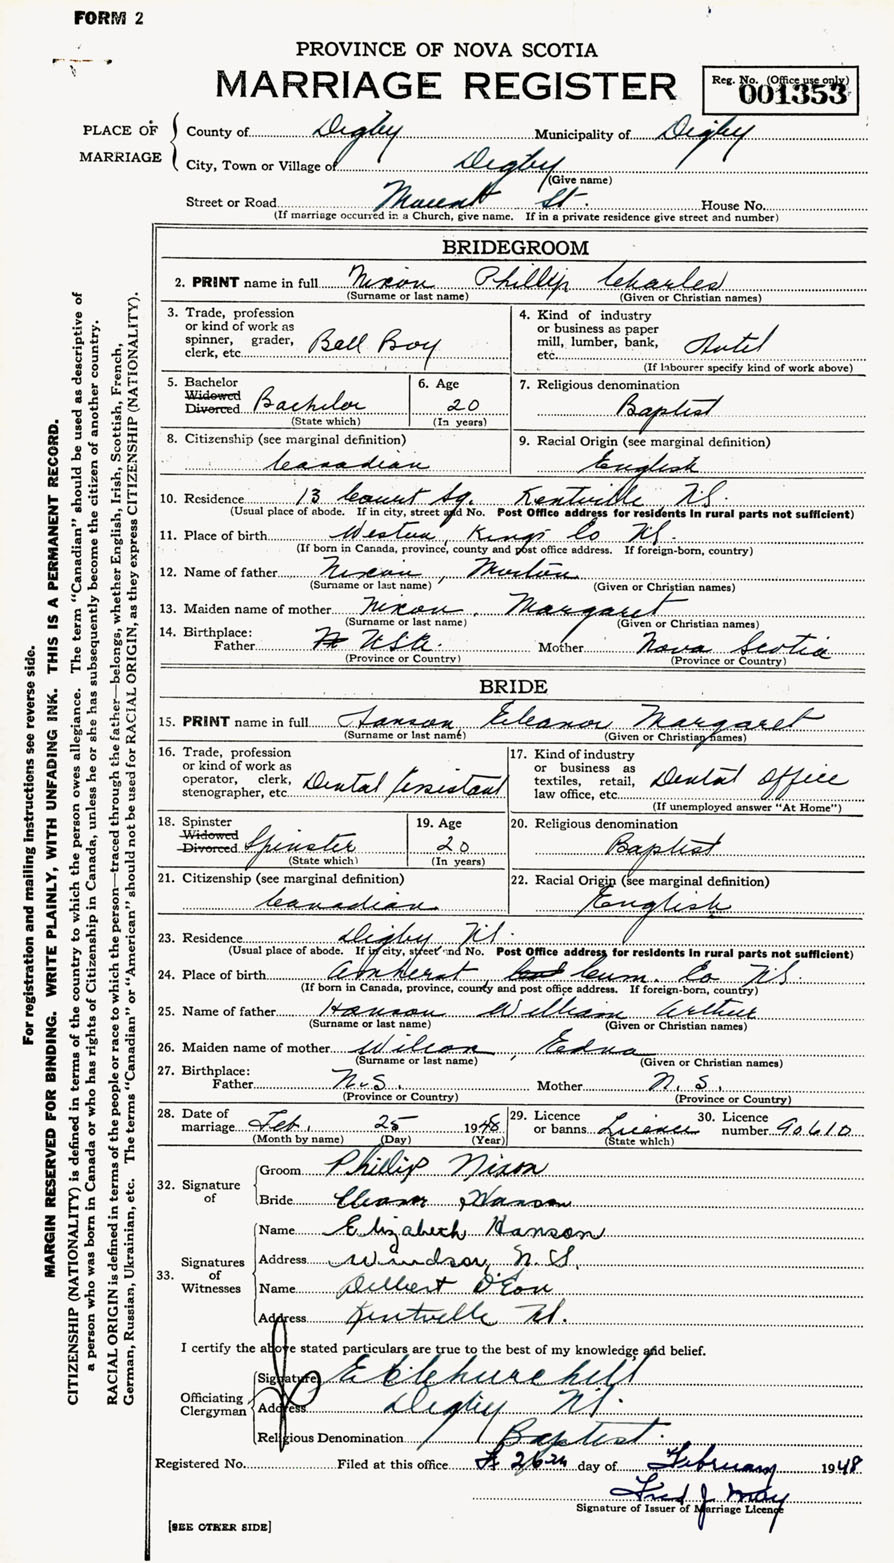 FORM 2
PROVINCE OF NOVA SCOTIA
MARRIAGE REGISTER
Reg. No. (Office use only)
001353
PLACE OF MARRIAGE
County of Digby Municipality of Digby
City, Town or Village of Digby
(Give name)
Street or Road St. House No.
(If marriage occurred in a Church, give name. If in a private residence give street and number)
BRIDEGROOM
2. PRINT name in full Nixon Phillip Charles
(Surname or last name) (Given or Christian names)
3. Trade, profession or kind of work as spinner, grader, clerk, etc. Bell Boy
4. Kind of industry or business as paper mill, lumber, bank, etc. Hotel
(If labourer specify kind of work above)
5. Bachelor Widowed Divorced Bachelor
(State which)
6. Age 20
(In years)
7. Religious denomination Baptist
8. Citizenship (see marginal definition) Canadian
9. Racial Origin (see marginal definition) English
10. Residence 13 Court Sq. Kentville N.S.
(Usual place of abode. If in city, street and No. Post Office address for residents in rural parts not sufficient)
11. Place of birth Weston, Kings Co N.S.
(If born in Canada, province, county and post office address. If foreign-born, country)
12. Name of father Nixon, Morton
(Surname or last name) (Given or Christian names)
13. Maiden name of mother Nixon, Margaret
(Surname or last name) (Given or Christian names)
14. Birthplace: Father U.S.A. Mother Nova Scotia
(Province or Country) (Province or Country)
BRIDE
15. PRINT name in full Hanson Eleanor Margaret
(Surname or last name) (Given or Christian names)
16. Trade, profession or kind of work as operator, clerk, stenographer, etc. Dental Assistant
17. Kind of industry or business as textiles, retail, law office, etc. Dental Office
(If unemployed answer "At Home")
18. Spinster Widowed Divorced Spinster
(State which)
19. Age 20
(In years)
20. Religious denomination Baptist
21. Citizenship (see marginal definition) Canadian
22. Racial Origin (see marginal definition) English
23. Residence Digby N.S.
(Usual place of abode. If in city, street and No. Post Office address for residents in rural parts not sufficient)
24. Place of birth Amherst Cum. Co N.S.
(If born in Canada, province, county and post office address. If foreign-born, country)
25. Name of father Hanson William Arthur
(Surname or last name) (Given or Christian names)
26. Maiden name of mother Wilson, Edna
(Surname or last name) (Given or Christian names)
27. Birthplace: Father N.S. Mother N.S.
(Province or Country) (Province or Country)
28. Date of marriage Feb. 25 1948
(Month by name) (Day) (Year)
29. Licence or banns Licence
(State which)
30. Licence number 90610
32. Signature of
Groom Phillip Nixon
Bride Eleanor Hanson
33. Signatures of Witnesses
Name Elizabeth Hanson
Address Windsor, N.S.
Name Delbert D'Eon
Address Kentville N.S.
I certify the above stated particulars are true to the best of my knowledge and belief.
Officiating Clergyman
(Signature) E C Churchill
Address Digby N.S.
Religious Denomination Baptist.
Registered No. Filed at this office 26th day of February 1948
Fred J. May
Signature of Issuer of Marriage Licence
[SEE OTHER SIDE]
For registration and mailing instructions see reverse side.
MARGIN RESERVED FOR BINDING. WRITE PLAINLY, WITH UNFADING INK. THIS IS A PERMANENT RECORD.
CITIZENSHIP (NATIONALITY) is defined in terms of the country to which the person owes allegiance. The term "Canadian" should be used as descriptive of
a person who was born in Canada or who has rights of Citizenship in Canada, unless he or she has subsequently become the citizen of another country.
RACIAL ORIGIN is defined in terms of the people or race to which the person—traced through the father—belongs, whether English, Irish, Scottish, French,
German, Russian, Ukrainian, etc. The terms "Canadian" or "American" should not be used for RACIAL ORIGIN, as they express CITIZENSHIP (NATIONALITY).